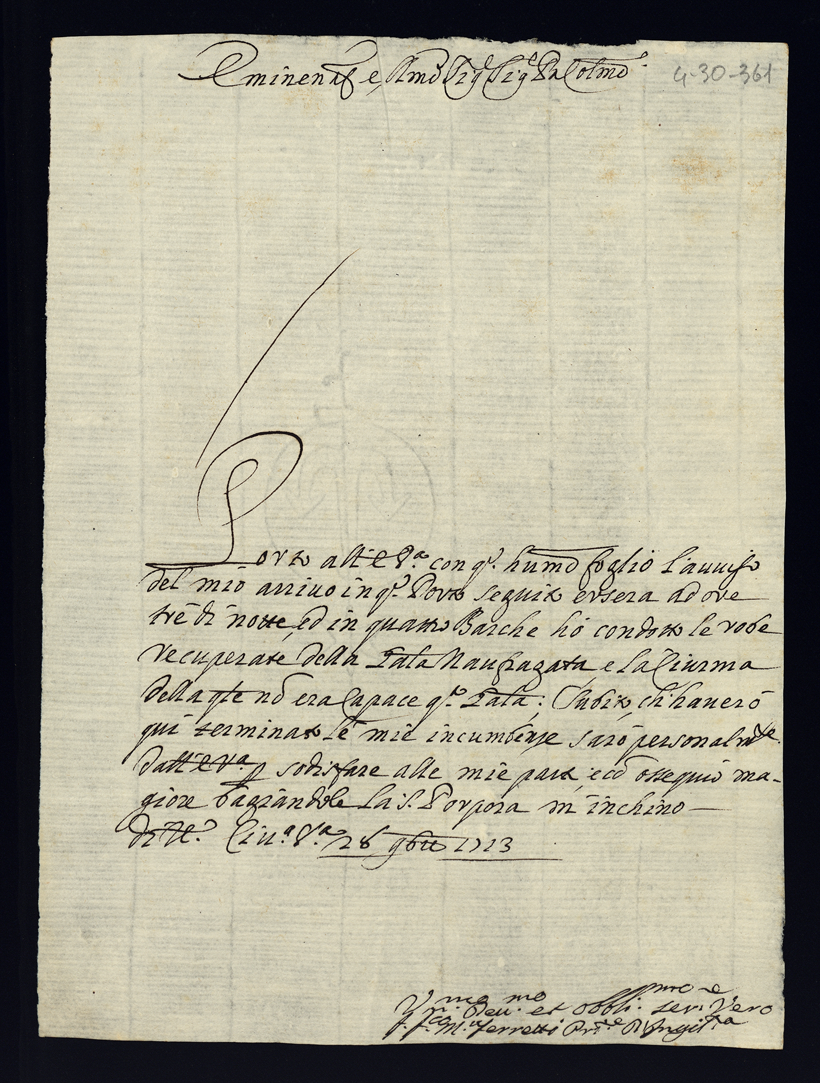 Eminen.mo e Rmo Sig.r Sig.r Pa Colmo
4-30-361
Porto all'E V.a con q.o humo foglio l'auuiso
del mio arriuo in q.o Porto seguito ersera ad ore
tré di notte, ed in quattro Barche hó condotto le robe
recuperate della Tala Naufragata, e la Ciurma
della qle nō era Capace q.a Tala; Subito, ch'hauerò
quì terminato le mie incumbenze saró personalm.te
dall'E V.a p sodisfare alle mie parti, e cō ossequio ma-
giore bagiandole la S. Porpora m'inchino
di V.E. Ciu.a V.a 28 9bre 1713
Deu. et obbli. ser. Vero
Ferretti